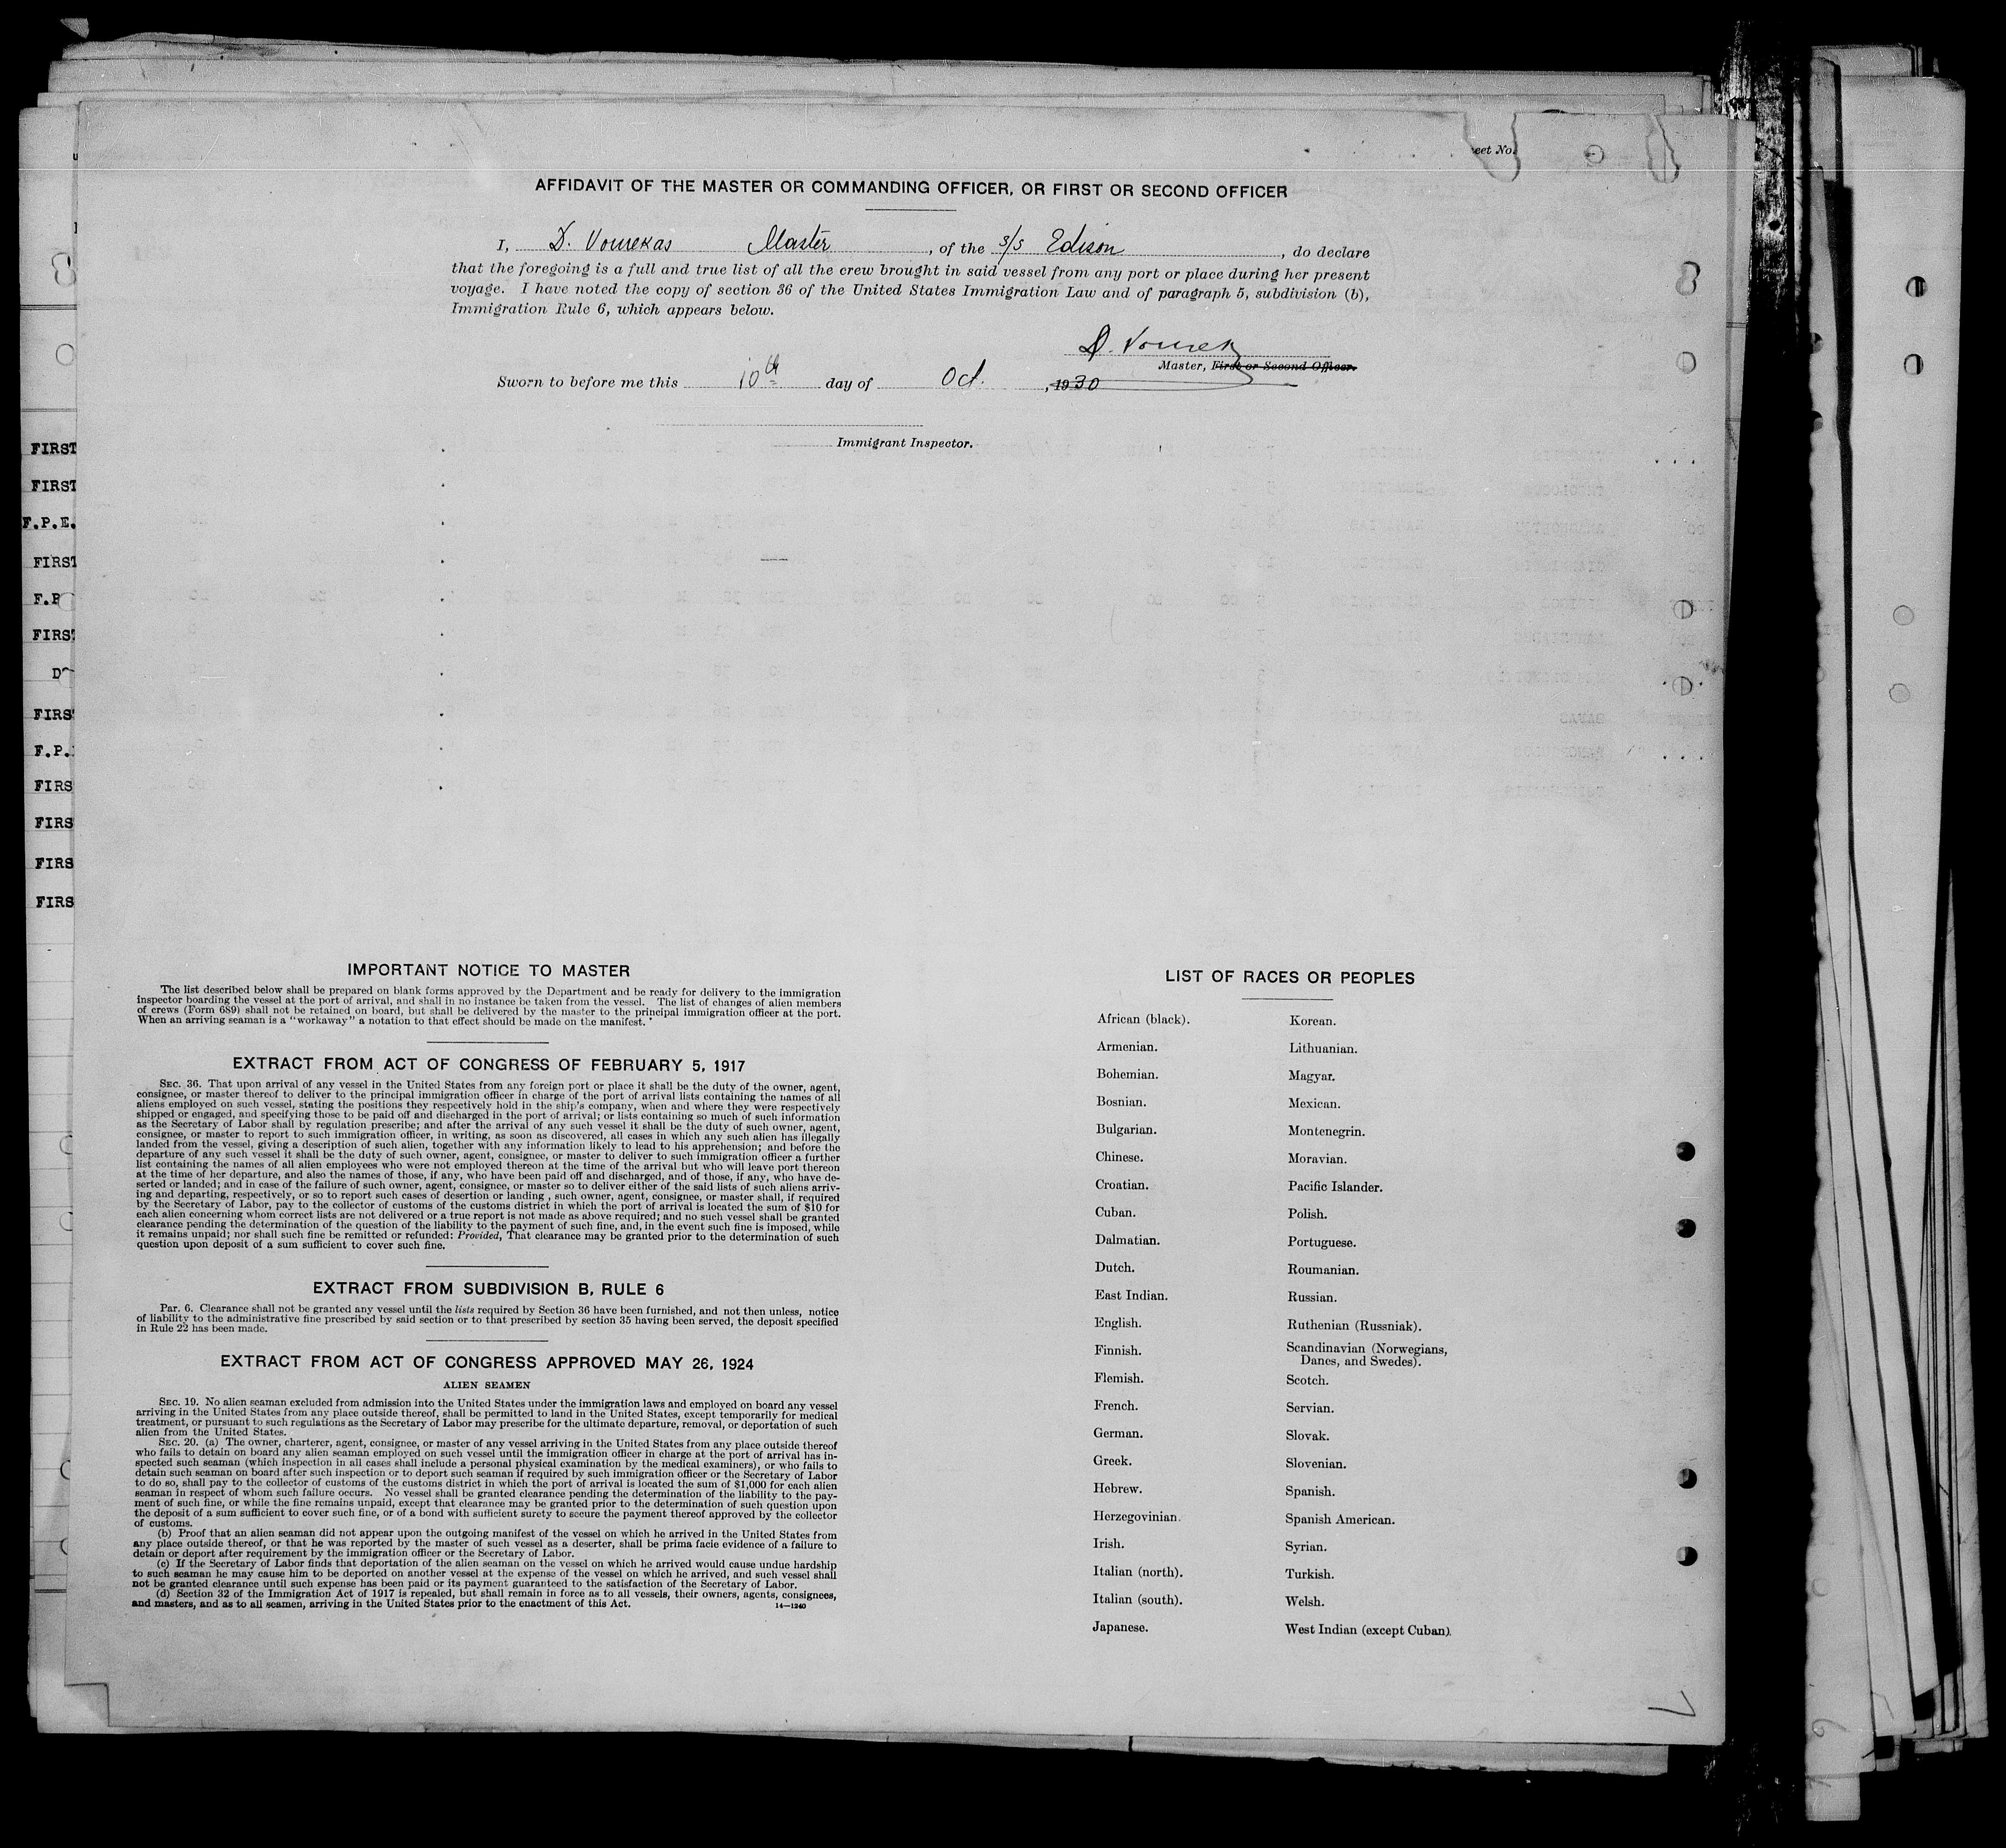 eet No.
AFFIDAVIT OF THE MASTER OR COMMANDING OFFICER, OR FIRST OR SECOND OFFICER
I, D. Vourekas Master, of the s/s Edison, do declare
that the foregoing is a full and true list of all the crew brought in said vessel from any port or place during her present
voyage. I have noted the copy of section 36 of the United States Immigration Law and of paragraph 5, subdivision (b),
Immigration Rule 6, which appears below.
D. Vourek
Master, First or Second Officer.
Sworn to before me this 10th day of Oct. , 1930
Immigrant Inspector.
FIRST
FIRST
F.P.E.
FIRST
F.P
FIRST
D
FIRS
F.P.
FIRS
FIRS
FIRS
FIRS
IMPORTANT NOTICE TO MASTER
The list described below shall be prepared on blank forms approved by the Department and be ready for delivery to the immigration
inspector boarding the vessel at the port of arrival, and shall in no instance be taken from the vessel. The list of changes of alien members
of crews (Form 689) shall not be retained on board, but shall be delivered by the master to the principal immigration officer at the port.
When an arriving seaman is a "workaway" a notation to that effect should be made on the manifest.
EXTRACT FROM ACT OF CONGRESS OF FEBRUARY 5, 1917
SEC. 36. That upon arrival of any vessel in the United States from any foreign port or place it shall be the duty of the owner, agent,
consignee, or master thereof to deliver to the principal immigration officer in charge of the port of arrival lists containing the names of all
aliens employed on such vessel, stating the positions they respectively hold in the ship's company, when and where they were respectively
shipped or engaged, and specifying those to be paid off and discharged in the port of arrival; or lists containing so much of such information
as the Secretary of Labor shall by regulation prescribe; and after the arrival of any such vessel it shall be the duty of such owner, agent,
consignee, or master to report to such immigration officer, in writing, as soon as discovered, all cases in which any such alien has illegally
landed from the vessel, giving a description of such alien, together with any information likely to lead to his apprehension; and before the
departure of any such vessel it shall be the duty of such owner, agent, consignee, or master to deliver to such immigration officer a further
list containing the names of all alien employees who were not employed thereon at the time of the arrival but who will leave port thereon
at the time of her departure, and also the names of those, if any, who have been paid off and discharged, and of those, if any, who have de-
serted or landed; and in case of the failure of such owner, agent, consignee, or master so to deliver either of the said lists of such aliens arriv-
ing and departing, respectively, or so to report such cases of desertion or landing, such owner, agent, consignee, or master shall, if required
by the Secretary of Labor, pay to the collector of customs of the customs district in which the port of arrival is located the sum of $10 for
each alien concerning whom correct lists are not delivered or a true report is not made as above required; and no such vessel shall be granted
clearance pending the determination of the question of the liability to the payment of such fine, and, in the event such fine is imposed, while
it remains unpaid; nor shall such fine be remitted or refunded: Provided, That clearance may be granted prior to the determination of such
question upon deposit of a sum sufficient to cover such fine.
EXTRACT FROM SUBDIVISION B, RULE 6
Par. 6. Clearance shall not be granted any vessel until the lists required by Section 36 have been furnished, and not then unless, notice
of liability to the administrative fine prescribed by said section or to that prescribed by section 35 having been served, the deposit specified
in Rule 22 has been made.
EXTRACT FROM ACT OF CONGRESS APPROVED MAY 26, 1924
ALIEN SEAMEN
SEC. 19. No alien seaman excluded from admission into the United States under the immigration laws and employed on board any vessel
arriving in the United States from any place outside thereof, shall be permitted to land in the United States, except temporarily for medical
treatment, or pursuant to such regulations as the Secretary of Labor may prescribe for the ultimate departure, removal, or deportation of such
alien from the United States.
SEC. 20. (a) The owner, charterer, agent, consignee, or master of any vessel arriving in the United States from any place outside thereof
who fails to detain on board any alien seaman employed on such vessel until the immigration officer in charge at the port of arrival has in-
spected such seaman (which inspection in all cases shall include a personal physical examination by the medical examiners), or who fails to
detain such seaman on board after such inspection or to deport such seaman if required by such immigration officer or the Secretary of Labor
to do so, shall pay to the collector of customs of the customs district in which the port of arrival is located the sum of $1,000 for each alien
seaman in respect of whom such failure occurs. No vessel shall be granted clearance pending the determination of the liability to the pay-
ment of such fine, or while the fine remains unpaid, except that clearance may be granted prior to the determination of such question upon
the deposit of a sum sufficient to cover such fine, or of a bond with sufficient surety to secure the payment thereof approved by the collector
of customs.
(b) Proof that an alien seaman did not appear upon the outgoing manifest of the vessel on which he arrived in the United States from
any place outside thereof, or that he was reported by the master of such vessel as a deserter, shall be prima facie evidence of a failure to
detain or deport after requirement by the immigration officer or the Secretary of Labor.
(c) If the Secretary of Labor finds that deportation of the alien seaman on the vessel on which he arrived would cause undue hardship
to such seaman he may cause him to be deported on another vessel at the expense of the vessel on which he arrived, and such vessel shall
not be granted clearance until such expense has been paid or its payment guaranteed to the satisfaction of the Secretary of Labor.
(d) Section 32 of the Immigration Act of 1917 is repealed, but shall remain in force as to all vessels, their owners, agents, consignees,
and masters, and as to all seamen, arriving in the United States prior to the enactment of this Act.
14—1240
LIST OF RACES OR PEOPLES
African (black).
Armenian.
Bohemian.
Bosnian.
Bulgarian.
Chinese.
Croatian.
Cuban.
Dalmatian.
Dutch.
East Indian.
English.
Finnish.
Flemish.
French.
German.
Greek.
Hebrew.
Herzegovinian.
Irish.
Italian (north).
Italian (south).
Japanese.
Korean.
Lithuanian.
Magyar.
Mexican.
Montenegrin.
Moravian.
Pacific Islander.
Polish.
Portuguese.
Roumanian.
Russian.
Ruthenian (Russniak).
Scandinavian (Norwegians,
Danes, and Swedes).
Scotch.
Servian.
Slovak.
Slovenian.
Spanish.
Spanish American.
Syrian.
Turkish.
Welsh.
West Indian (except Cuban).